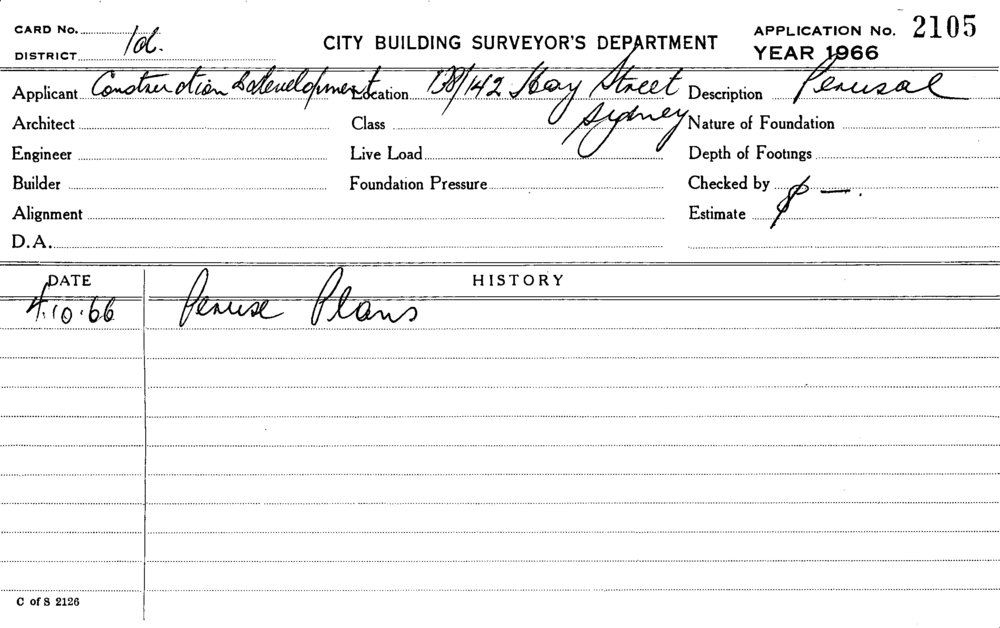 CARD No.
DISTRICT 1d.
CITY BUILDING SURVEYOR'S DEPARTMENT
APPLICATION No. 2105
YEAR 1966
Applicant Construction & development Location 138/142 Hay Street Description Perusal
Sydney
Architect Class Nature of Foundation
Engineer Live Load Depth of Footings
Builder Foundation Pressure Checked by
Alignment Estimate
D.A.
DATE HISTORY
4.10.66 Peruse Plans
C of S 2126